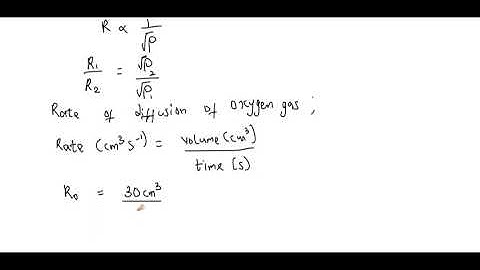 R ∝ 1/√ρ
R₁/R₂ = √ρ₂/√ρ₁
Rate of diffusion of oxygen gas ;
Rate (cm³ s⁻¹) = volume (cm³)/time (s)
R₀ = 30 cm³/